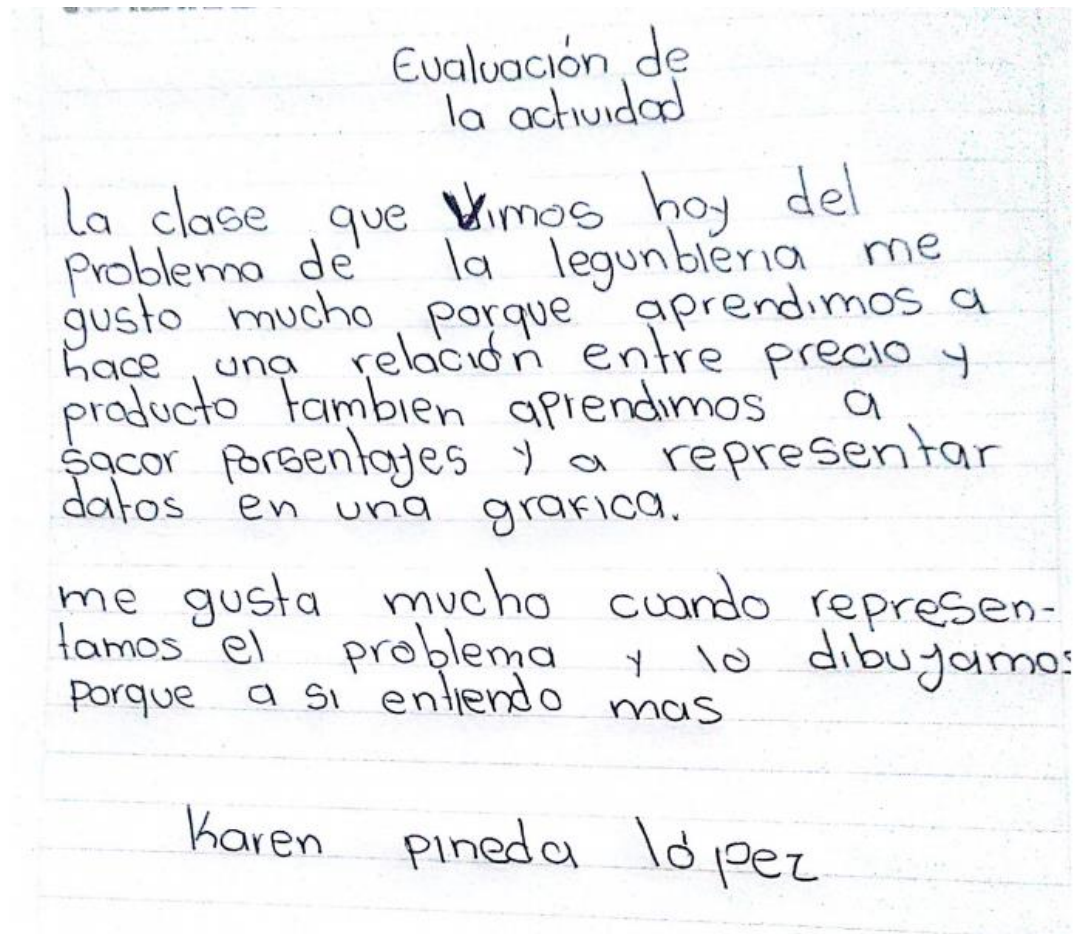 Evaluación de
la actividad
La clase que Vimos hoy del
Problema de la legunbleria me
gusto mucho porque aprendimos a
hace una relación entre precio y
producto tambien aprendimos a
sacar porsentajes y a representar
datos en una grafica.
me gusta mucho cuando represen-
tamos el problema y lo dibujamos
porque a si entiendo mas
Karen pineda lópez